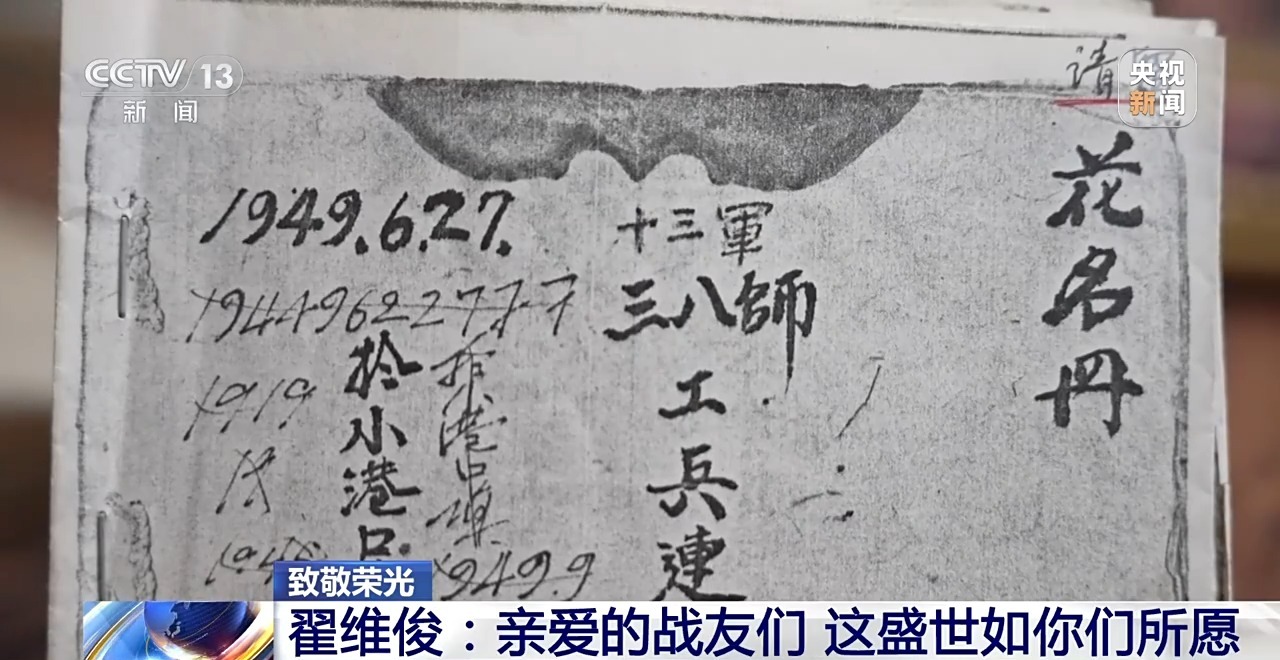 CCTV 13
新闻
央视
新闻
请
花名册
十三軍
三八師
工兵連
1949.6.27.
194496227777
於小港口
1919
1949.9
致敬荣光
翟维俊：亲爱的战友们 这盛世如你们所愿